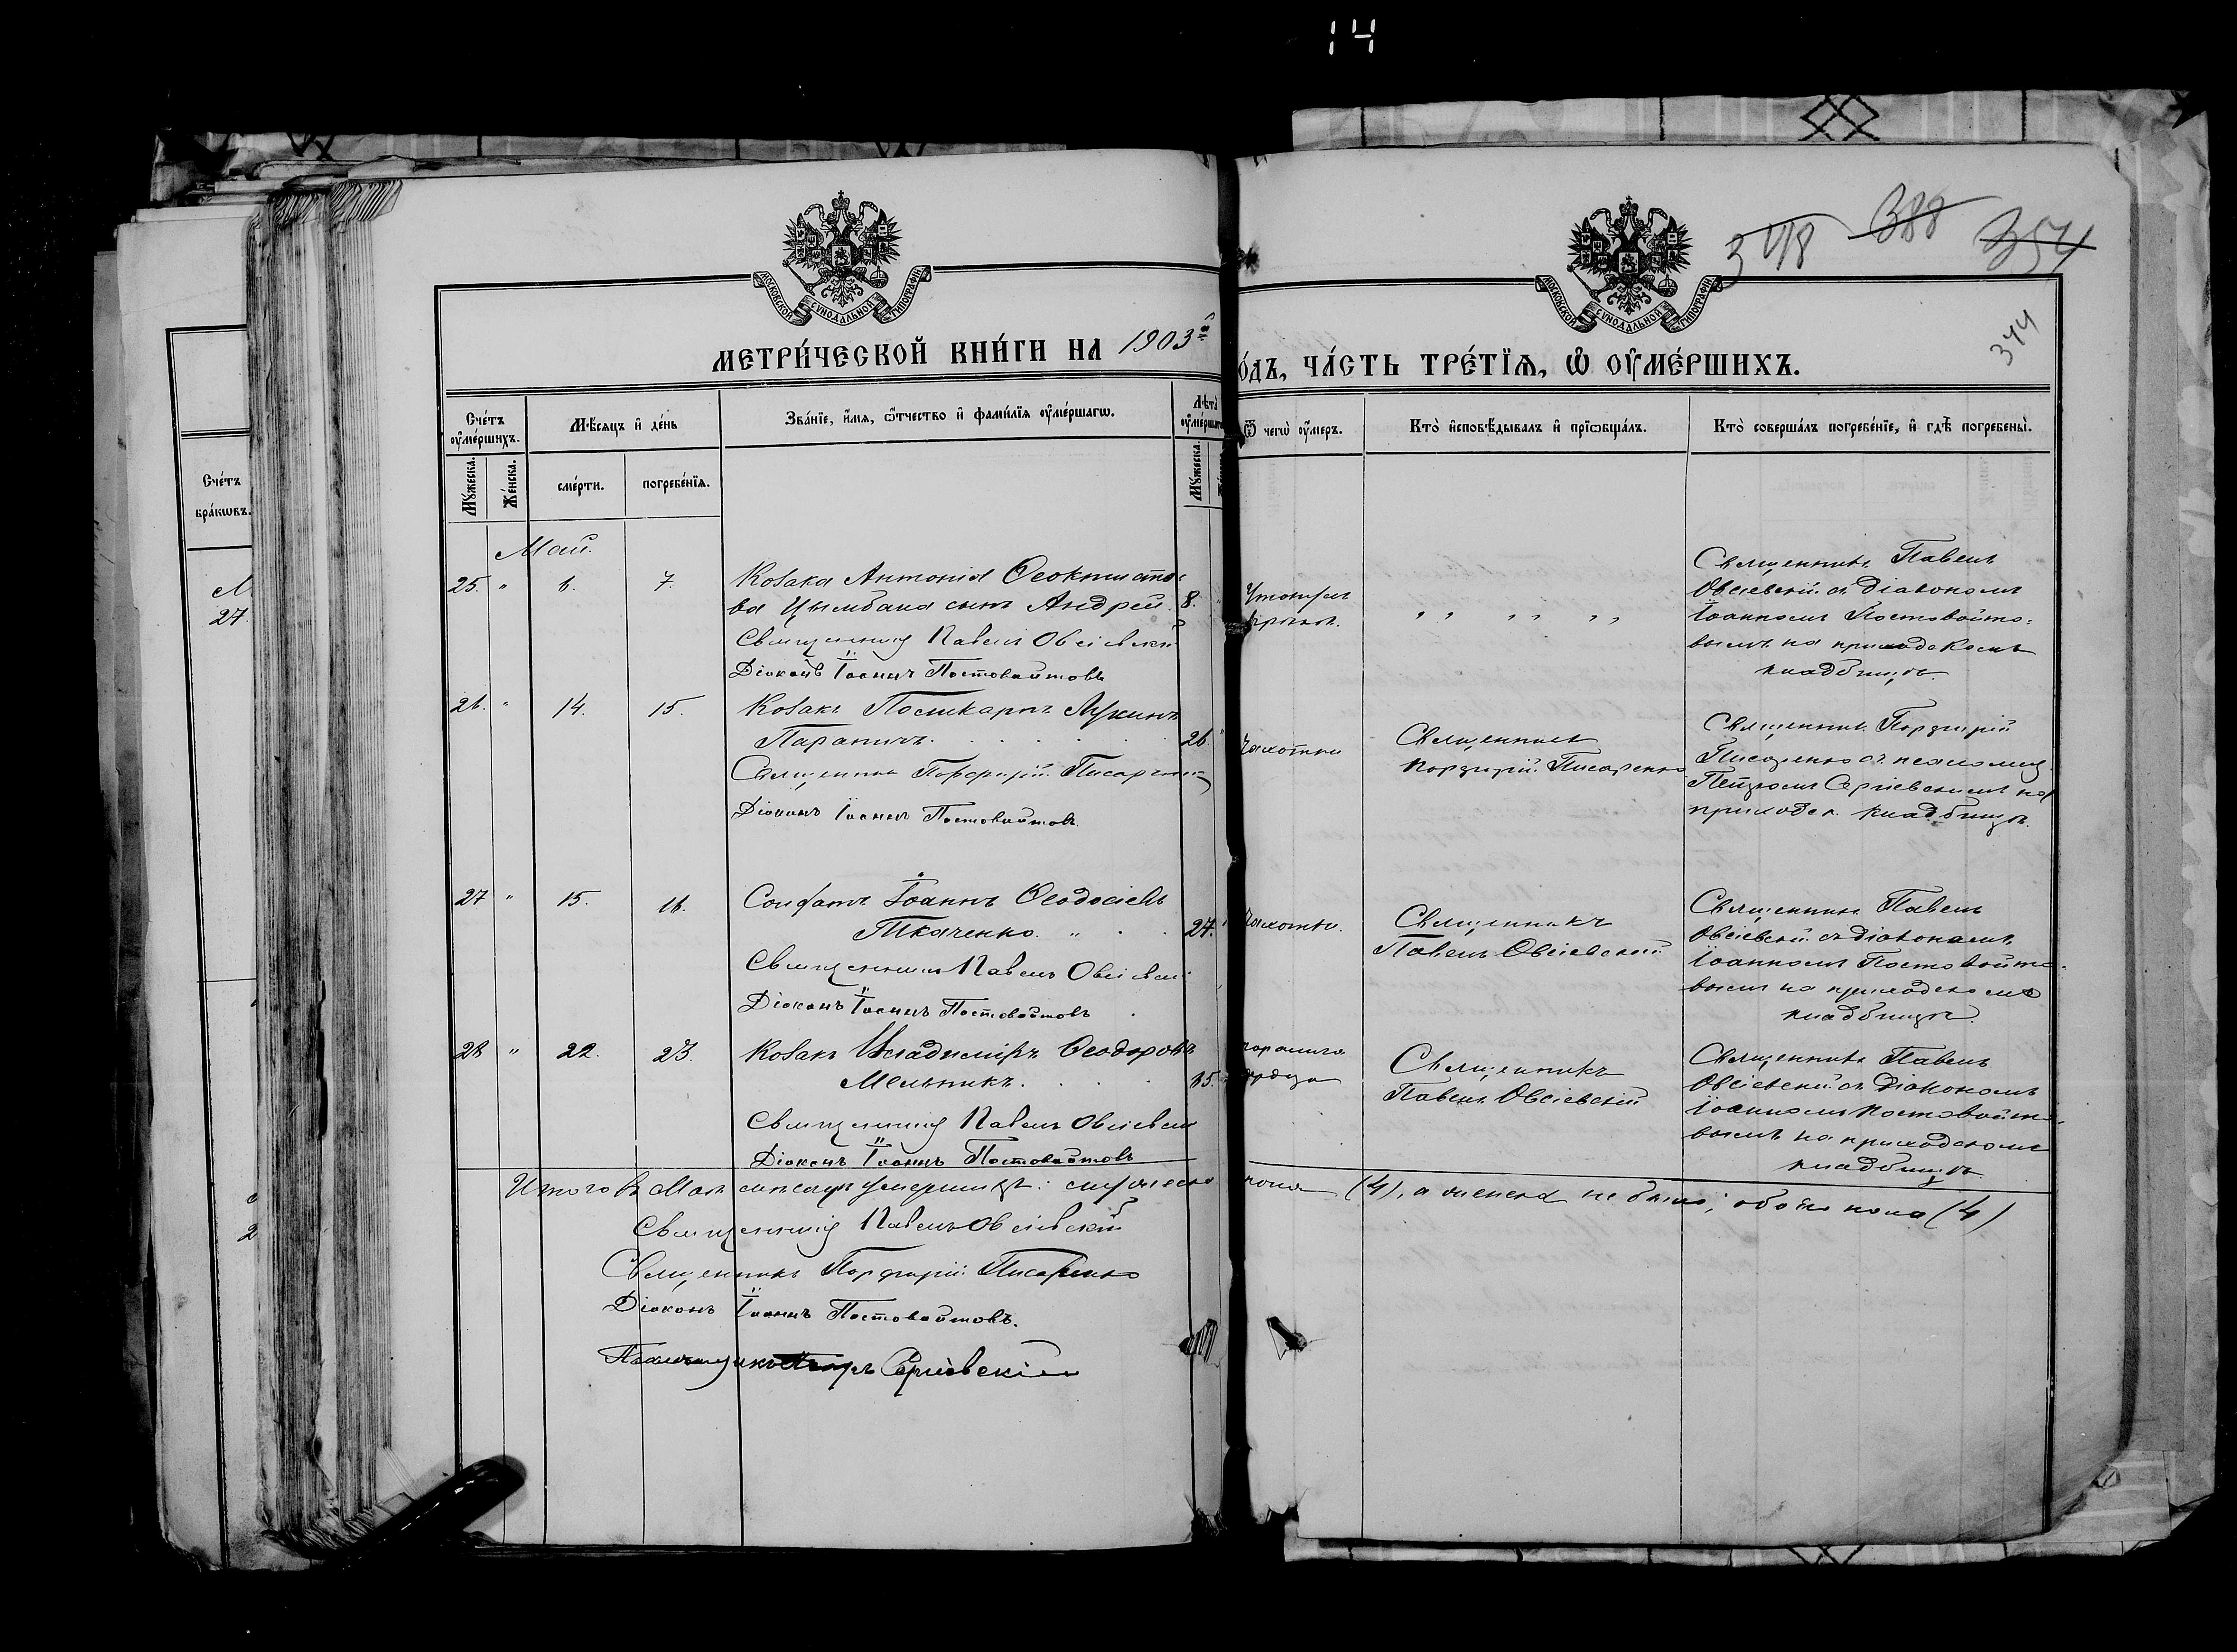 14
348 388 354
344
МОСКОВСКОЙ СѴНОДАЛЬНОЙ ТИПОГРАФІИ
МОСКОВСКОЙ СѴНОДАЛЬНОЙ ТИПОГРАФІИ
МЕТРИ́ЧЕСКОЙ КНИ́ГИ НА 1903й
О́ДЪ, ЧА́СТЬ ТРЕ́ТЇѦ, Ѡ҆ ОУ҆МЕ́РШИХЪ.
Сче́тъ оу҆ме́ршихъ.
Мꙋ́жеска.
Же́нска.
Мѣ́сѧцъ и҆ де́нь
сме́рти.
погребе́нїѧ.
Зва́нїе, и҆́мѧ, ѻ҆́тчество и҆ фами́лїѧ оу҆ме́ршагѡ.
Лѣ́та оу҆ме́ршаг
Мꙋ́жеска.
Ѿ чегѡ̀ оу҆́меръ.
Кто̀ и҆сповѣ́дывалъ и҆ прїѡбща́лъ.
Кто̀ соверша́лъ погребе́нїе, и҆ гдѣ̀ погребены̀.
Сче́тъ
бра́кѡвъ.
27.
Май.
25. " 6. 7. Козака Антонія Ѳеоктисто-
ва Цымбала сынъ Андрей. 8.
Священникъ Павелъ Овсіевскій
Діаконъ Іоаннъ Постовойтовъ
" " " " " "
Священникъ Павелъ
Овсіевскій съ Діакономъ
Іоанномъ Постовойто-
вымъ на приходскомъ
кладбищѣ.
26. " 14. 15. Козакъ Поликарпъ Лукинъ
26.
Священникъ Порфирій Писаренко
Діаконъ Іоаннъ Постовойтовъ.
Чахотки
Священникъ
Порфирій Писаренко
Священникъ Порфирій
Писаренко съ псаломщ.
Петромъ Сергіевскимъ на
приходск. кладбищѣ.
27 " 15. 16. Солдатъ Іоаннъ Ѳеодосіевъ
Ткаченко. " 27.
Священникъ Павелъ Овсіевскій
Діаконъ Іоаннъ Постовойтовъ
Чахотки.
Священникъ
Павелъ Овсіевскій
Священникъ Павелъ
Овсіевскій съ Діакономъ
Іоанномъ Постовойто-
вымъ на приходскомъ
кладбищѣ.
28 " 22. 23. Козакъ Владиміръ Ѳеодоровъ
Мельникъ.
Священникъ Павелъ Овсіевскій
Діаконъ Іоаннъ Постовойтовъ
Священникъ
Павелъ Овсіевскій
Священникъ Павелъ
Овсіевскій съ Діакономъ
Іоанномъ Постовойто-
вымъ на приходскомъ
кладбищѣ
Итого въ Маѣ мѣсяцѣ умершихъ: мужеска пола (4), а женска не было; обоего пола (4)
Священникъ Павелъ Овсіевскій
Священникъ Порфирій Писаренко
Діаконъ Іоаннъ Постовойтовъ.
Псаломщикъ Петръ Сергіевскій